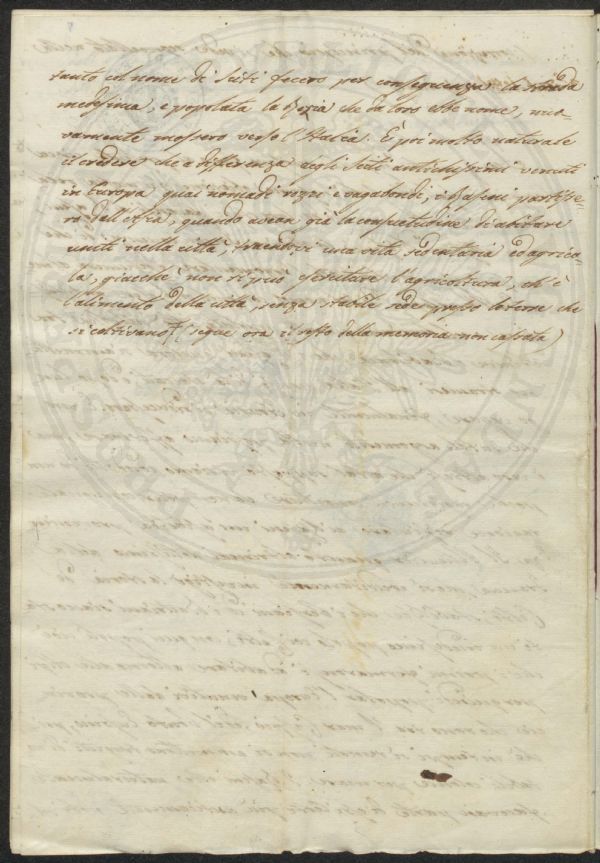 tanto col nome di Sciti fecero per conseguenza la strada
medesima, e popolata la Rezia che da loro ebbe nome, nuo-
vamente mossero verso l'Italia. È poi molto naturale
il credere che a differenza degli Sciti antichissimi venuti
in Europa quai nomadi rozzi e vagabondi, i Raseni partisse-
ro dall'Asia, quando avean già la consuetudine di abitare
uniti nella città, traendovi una vita sedentaria ed agrico-
la, giacchè non si può esercitare l'agricoltura, ch'è
l'alimento della città, senza stabile sede presso le terre che
si coltivano (segue ora il resto della memoria non cassata)